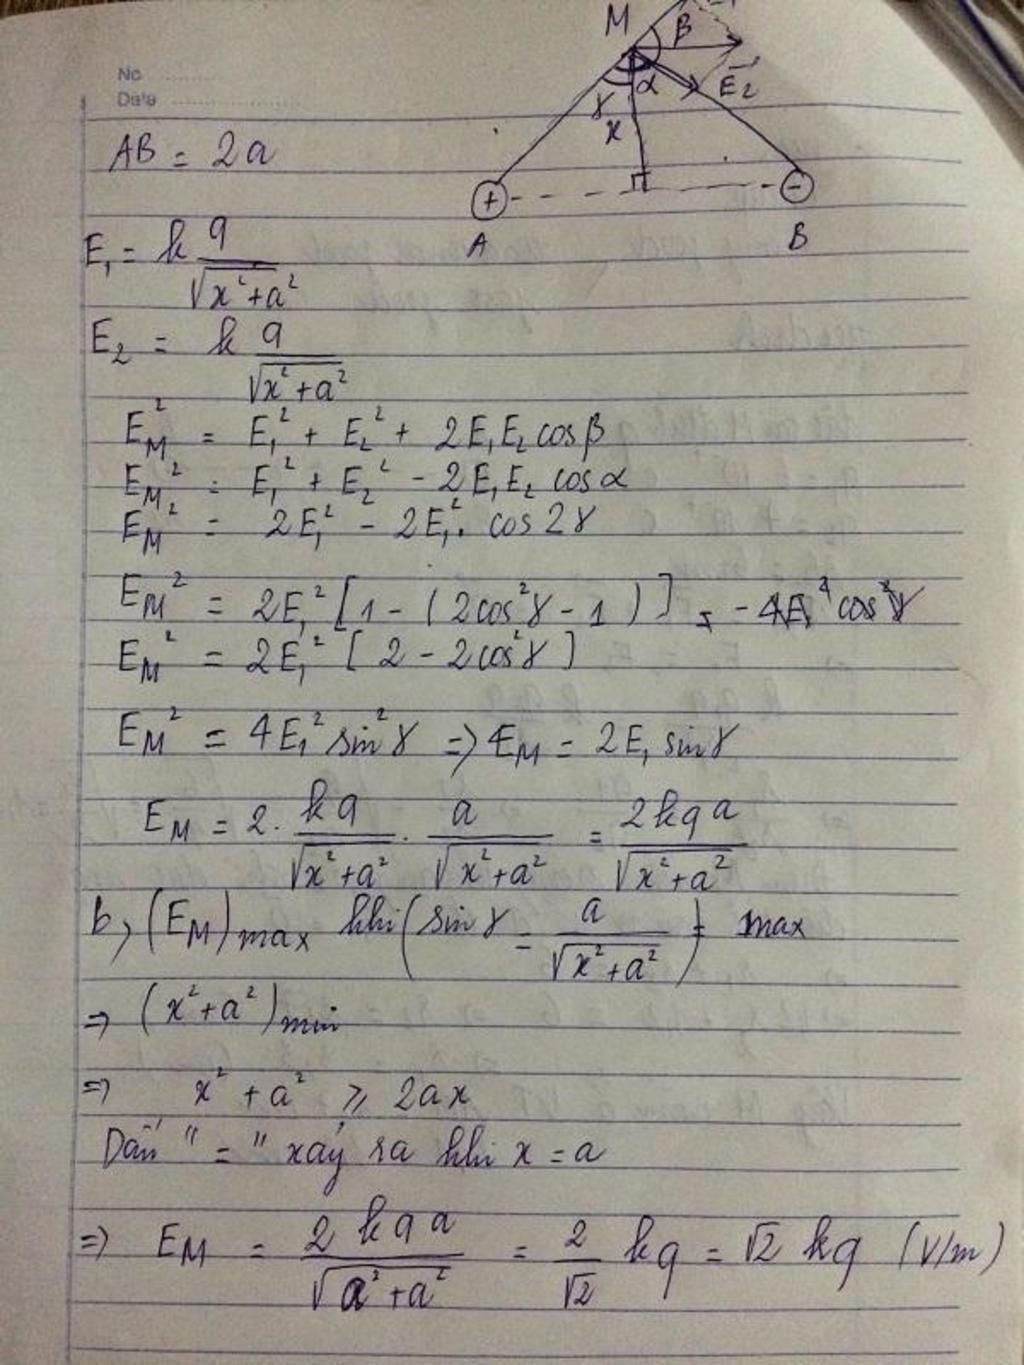 M β
No
Date
α E₂
γ
x
AB = 2a
+ -
A B
E₁ = k q/√(x²+a²)
E₂ = k q/√(x²+a²)
E_M² = E₁² + E₂² + 2E₁E₂ cosβ
E_M² = E₁² + E₂² - 2E₁E₂ cosα
E_M² = 2E₁² - 2E₁². cos2γ
E_M² = 2E₁² [1 - (2cos²γ - 1)] = -4E₁⁴ cos²γ
E_M² = 2E₁² [2 - 2cos²γ]
E_M² = 4E₁² sin²γ => E_M = 2E₁ sinγ
E_M = 2. kq/√(x²+a²) . a/√(x²+a²) = 2kqa/√(x²+a²)
b, (E_M)max khi (sinγ = a/√(x²+a²)) max
=> (x²+a²)min
=> x² + a² ⩾ 2ax
Dấu "=" xảy ra khi x = a
=> E_M = 2kqa/√(a²+a²) = 2/√2 kq = √2 kq (V/m)